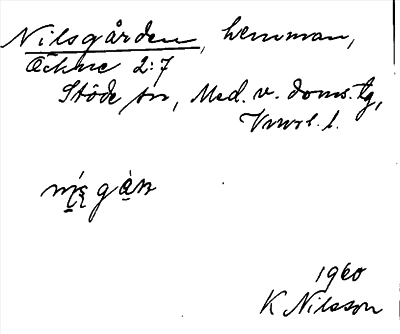 Nilsgården, hemman,
Öckne 2:7
Stöde sn, Med. v. doms. tg,
Vnrl. l.
1960
K Nilsson